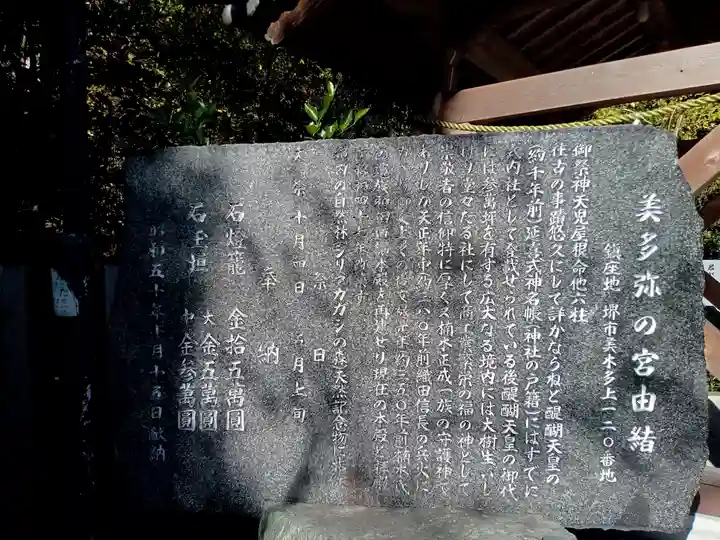 美多弥の宮由緒
鎮座地 堺市美木多上一二〇番地
御祭神天児屋根命他六柱
往古の事蹟悠久にして詳かならねど醍醐天皇の
(約千年前)延喜式神名帳(神社の戸籍)にはすでに
式内社として登載せられている後醍醐天皇の御代
には参萬坪を有する広大なる境内には大樹生いし
げり堂々たる社にして商工農業の福の神として
崇敬者の信仰特に厚く又楠木正成一族の守護神で
ありしが天正年中約三八〇年前織田信長の兵火に
年約三五〇年前楠木氏
の和田 本殿を再建せり現在の本殿と拝殿
の自然林シリブカガシの森天然記念物に
祭日
大祭 十月四日 七月七旬
奉納
石燈籠 金拾五萬圓
石玉垣 大金五萬圓
中金参萬圓
昭和五十年十月十五日献納